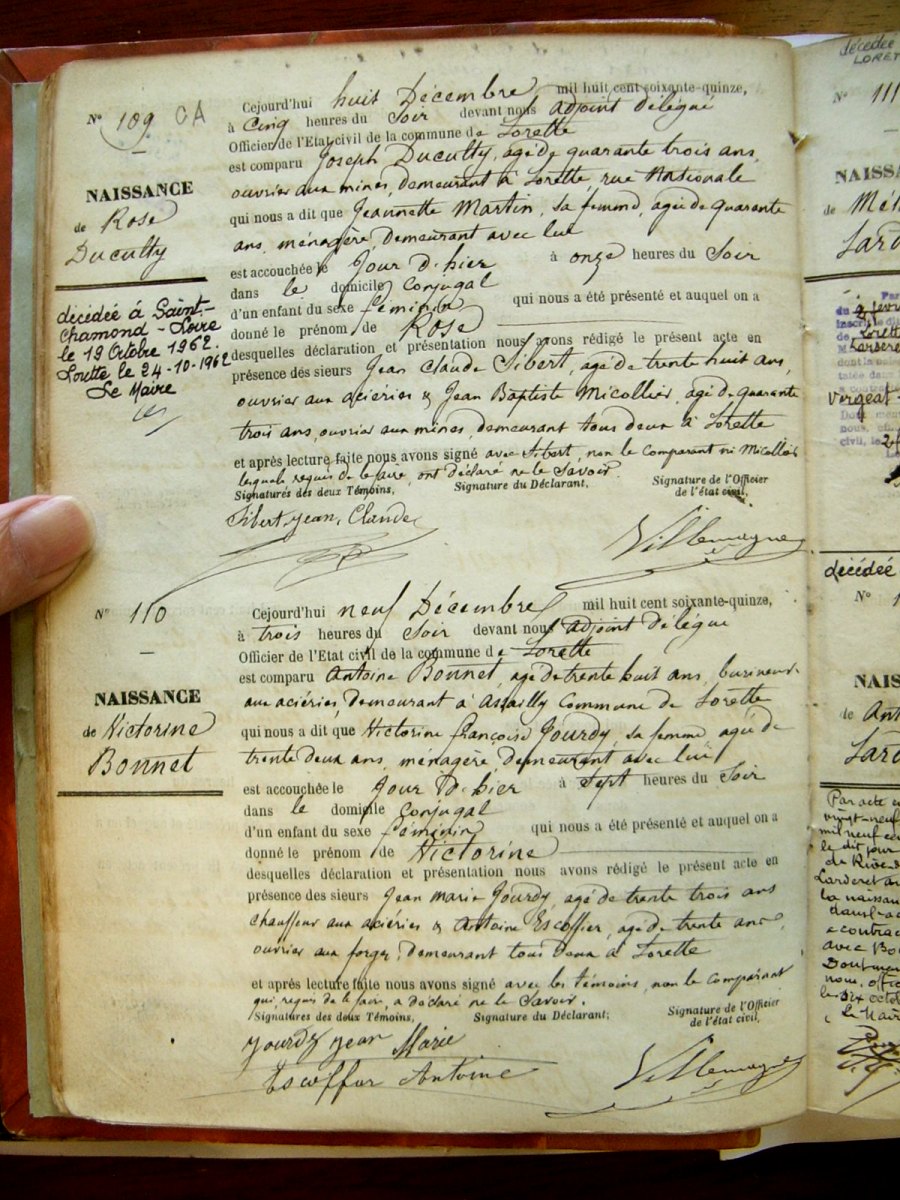 N° 109. CA
NAISSANCE
de Rose
Ducultty
décédée à Saint-
Chamond - Loire
le 19 Octobre 1962.
Lorette le 24-10-1962
Le Maire
Cejourd'hui huit Décembre mil huit cent soixante-quinze,
à Cinq heures du Soir devant nous adjoint délégué
Officier de l'Etat civil de la commune de Lorette
est comparu Joseph Ducultty, agé de quarante trois ans,
ouvrier aux mines, demeurant à Lorette rue Nationale
qui nous a dit que Jeannette Martin, sa femme, agée de quarante
ans, ménagère, demeurant avec lui
est accouchée le Jour d'hier à onze heures du Soir
dans le domicile Conjugal
d'un enfant du sexe féminin qui nous a été présenté et auquel on a
donné le prénom de Rose
desquelles déclaration et présentation nous avons rédigé le présent acte en
présence des sieurs Jean Claude Sibert, agé de trente huit ans,
ouvrier aux aciéries & Jean Baptiste Micollier, agé de quarante
trois ans, ouvrier aux mines, demeurant tous deux à Lorette
et après lecture faite nous avons signé avec Sibert, non le Comparant ni Micollier
lesquels requis de le faire, ont déclaré ne le Savoir.
Signatures des deux Témoins, Signature du Déclarant, Signature de l'Officier
de l'état civil,
Sibert, jean, Claude
Villemagne
N° 110
NAISSANCE
de Victorine
Bonnet
Cejourd'hui neuf Décembre mil huit cent soixante-quinze,
à trois heures du Soir devant nous adjoint délégué
Officier de l'Etat civil de la commune de Lorette
est comparu Antoine Bonnet, agé de trente huit ans, burineur
aux aciéries, demeurant à Assailly Commune de Lorette
qui nous a dit que Victorine françoise Jourdy, sa femme, agée de
trente deux ans, ménagère, demeurant avec lui
est accouchée le Jour d'hier à Sept heures du Soir
dans le domicile Conjugal
d'un enfant du sexe féminin qui nous a été présenté et auquel on a
donné le prénom de Victorine
desquelles déclaration et présentation nous avons rédigé le présent acte en
présence des sieurs Jean Marie Jourdy, agé de trente trois ans
chauffeur aux aciéries & Antoine Escoffier, agé de trente ans,
ouvrier aux forges, demeurant tous deux à Lorette
et après lecture faite nous avons signé avec les témoins, non le Comparant
qui, requis de le faire, a déclaré ne le Savoir.
Signatures des deux Témoins, Signature du Déclarant; Signature de l'Officier
de l'état civil,
jourdy jean Marie
Escoffier Antoine
Villemagne
décédée
LORET
N° 111
NAISSANC
de Mél
Lard
décédée
N° 1
NAIS
de Ant
Lard
Par acte en
vingt-neuf
mil neuf cen
le dit jour
de Rive d
Larderet a
la naissan
avec Bo
nom, offic
le dix octo
Le Maire